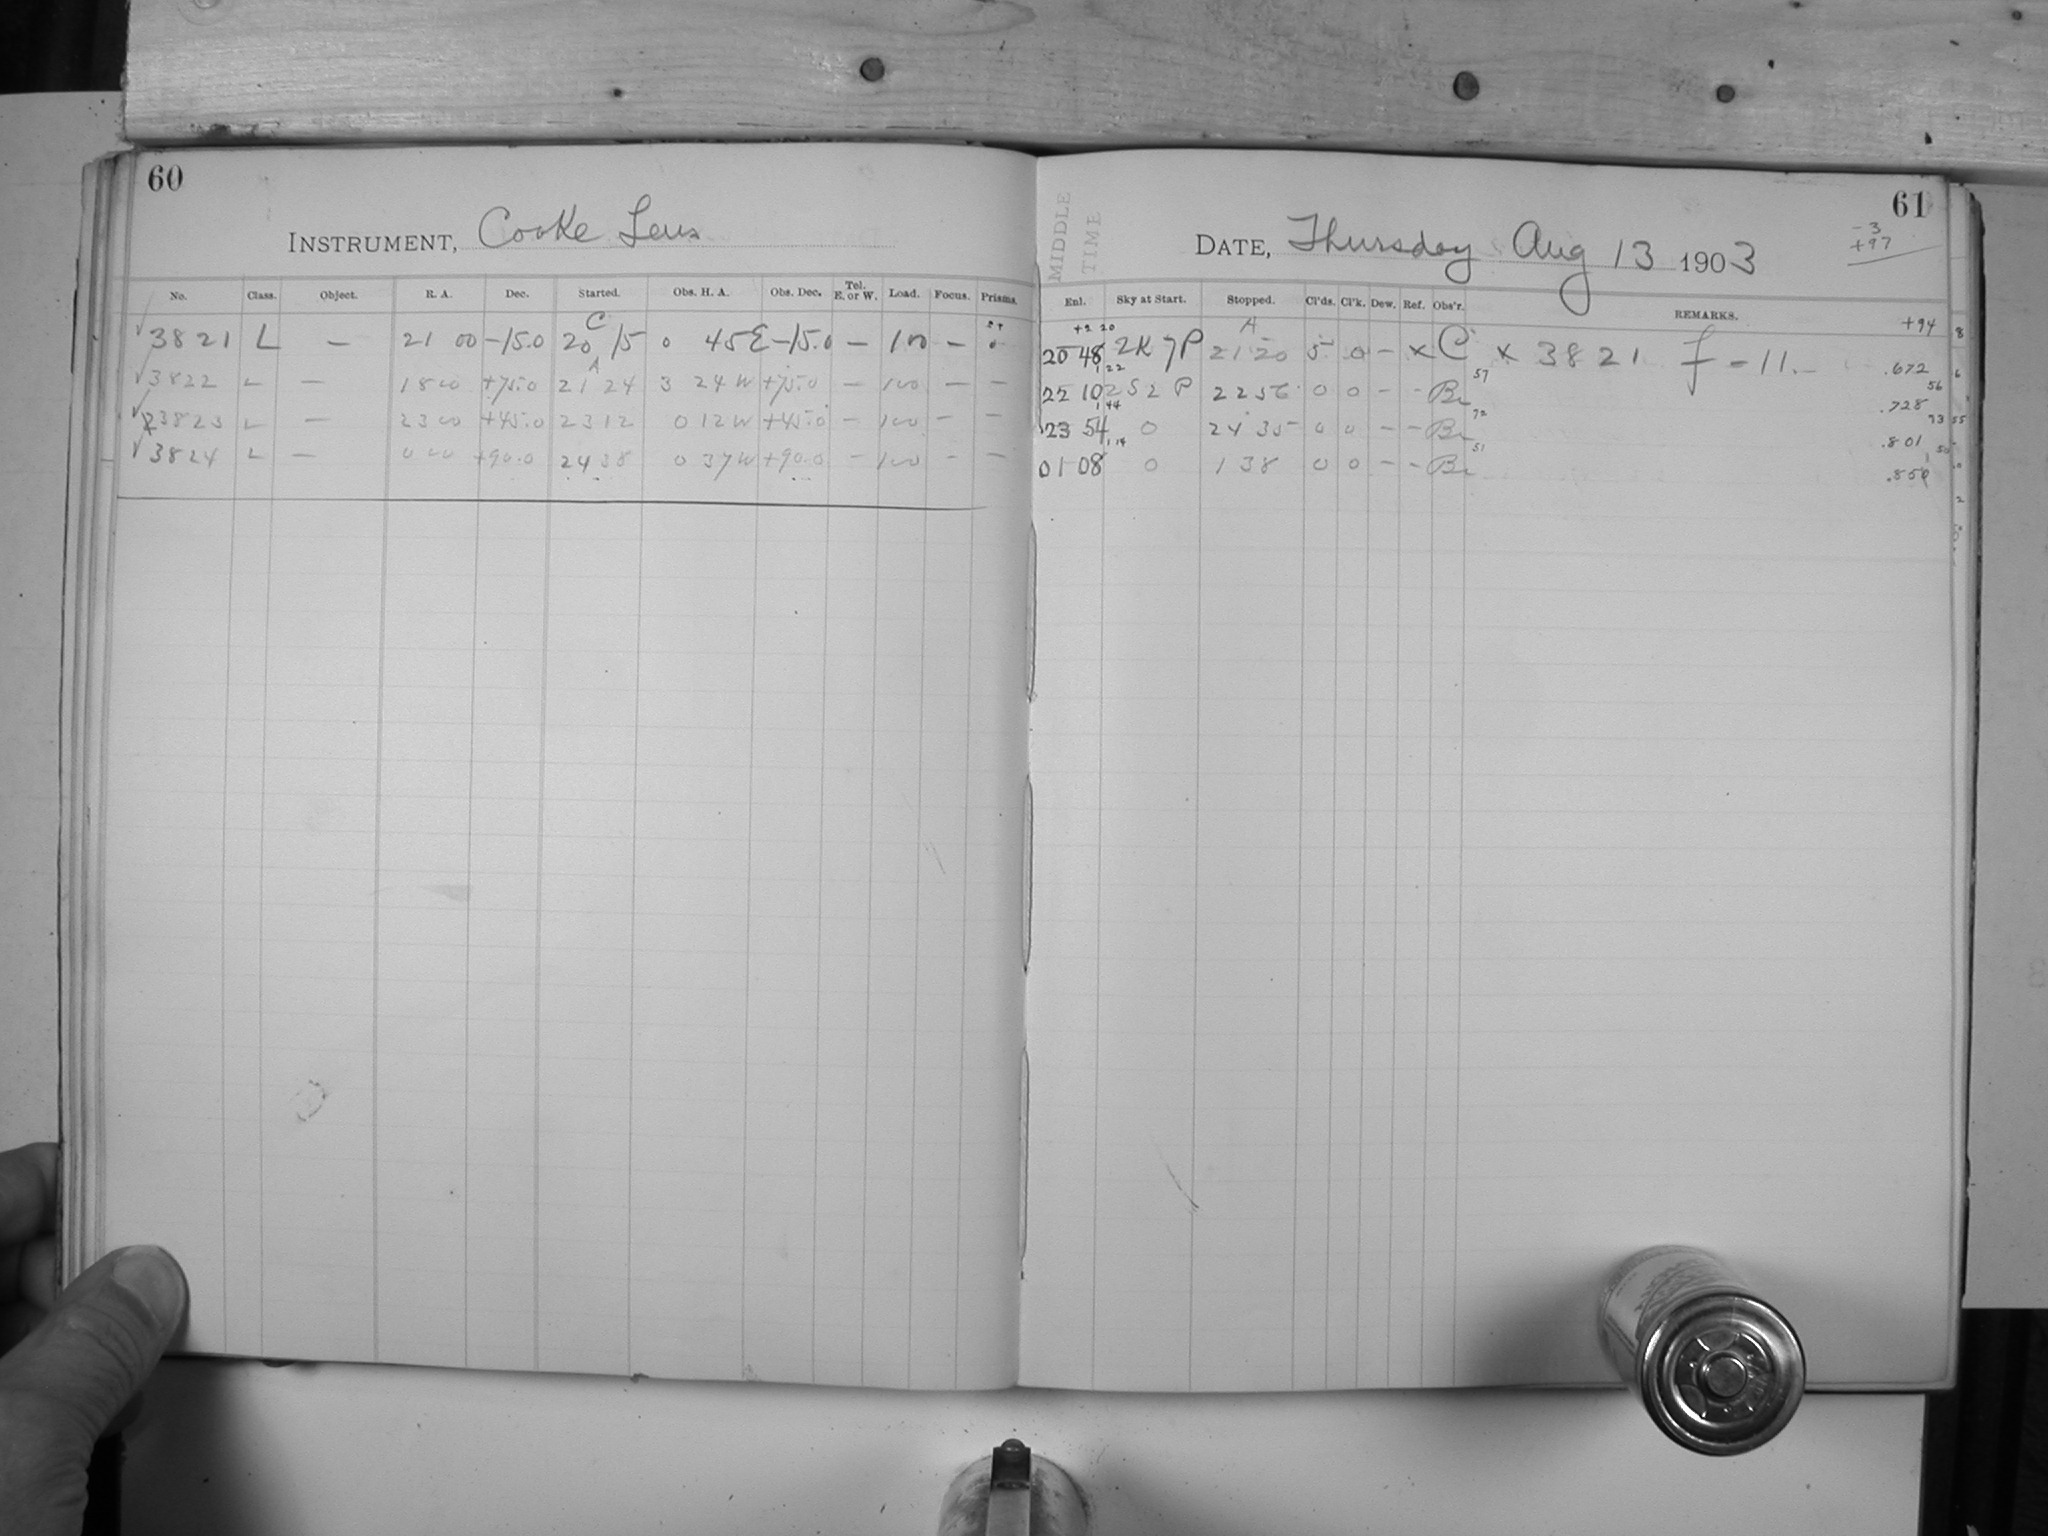 60
INSTRUMENT, Cooke Lens
No. Class. Object. R. A. Dec. Started. Obs. H. A. Obs. Dec. Tel. E. or W. Load. Focus. Prisms.
C
√3821 L — 21 00 -15.0 20 15 0 45 E -15.0 — 100 —
A
√3822 L — 18 00 +75.0 21 24 3 24 W +75.0 — 100 — —
√3823 L — 23 00 +45.0 23 12 0 12 W +45.0 — 100 — —
√3824 L — 0 00 +90.0 24 38 0 37 W +90.0 — 100 — —
61
MIDDLE TIME
DATE, Thursday Aug 13 1903
-3
+97
Enl. Sky at Start. Stopped. Cl'ds. Cl'k. Dew. Ref. Obs'r. REMARKS.
+94
+2 20
A
20 48 2K7P 21 20 5 0 — x C x 3821 f - 11. .672
1 22 57 56
22 10 2S2P 22 56 0 0 — - Br .728
1 44 72 73
23 54 0 24 35 0 0 — - Br .801
1 14 51 50
01 08 0 1 38 0 0 — - Br